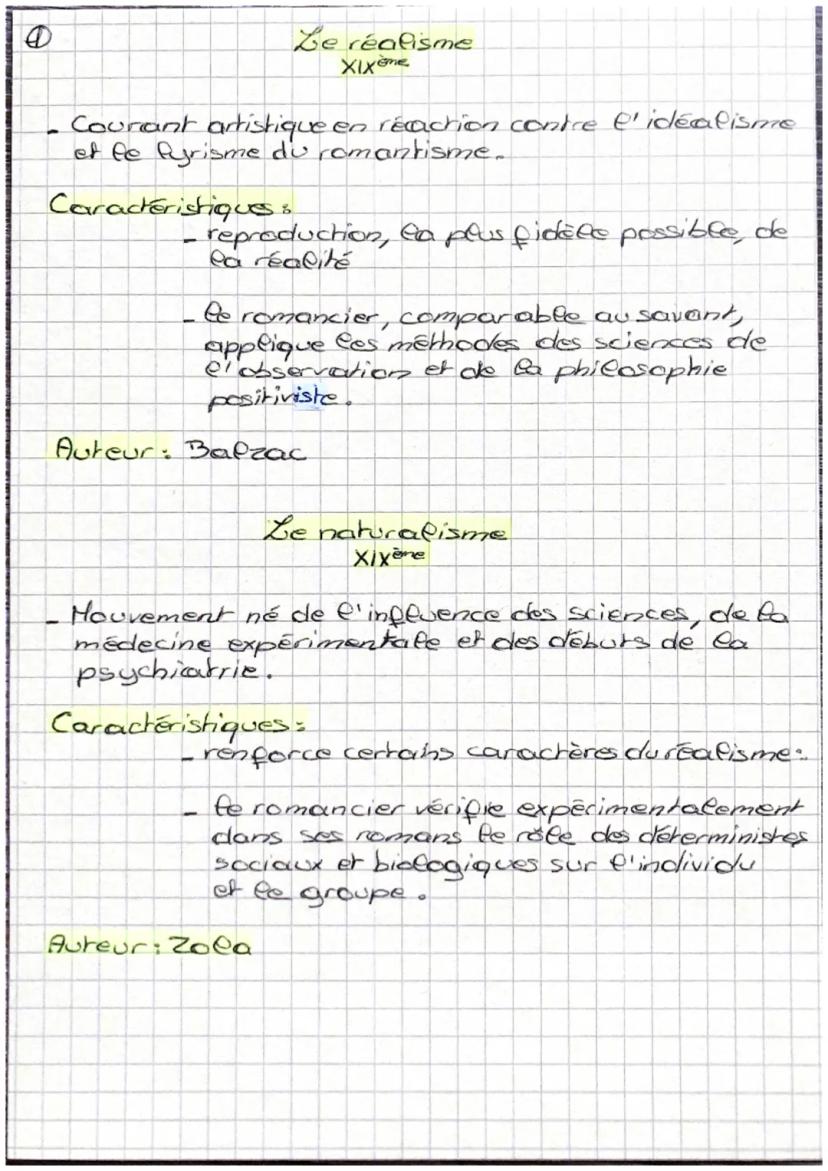 ①
Le réalisme
XIXème
- Courant artistique en réaction contre l'idéalisme
et le lyrisme du romantisme.
Caractéristiques :
- reproduction, la plus fidèle possible, de
la réalité
- le romancier, comparable au savant,
applique les méthodes des sciences de
l'observation et de la philosophie
positiviste.
Auteur : Balzac
Le naturalisme
XIXème
- Mouvement né de l'influence des sciences, de la
médecine expérimentale et des débuts de la
psychiatrie.
Caractéristiques :
- renforce certains caractères du réalisme :
- le romancier vérifie expérimentalement
dans ses romans le rôle des déterministes
sociaux et biologiques sur l'individu
et le groupe.
Auteur : Zola